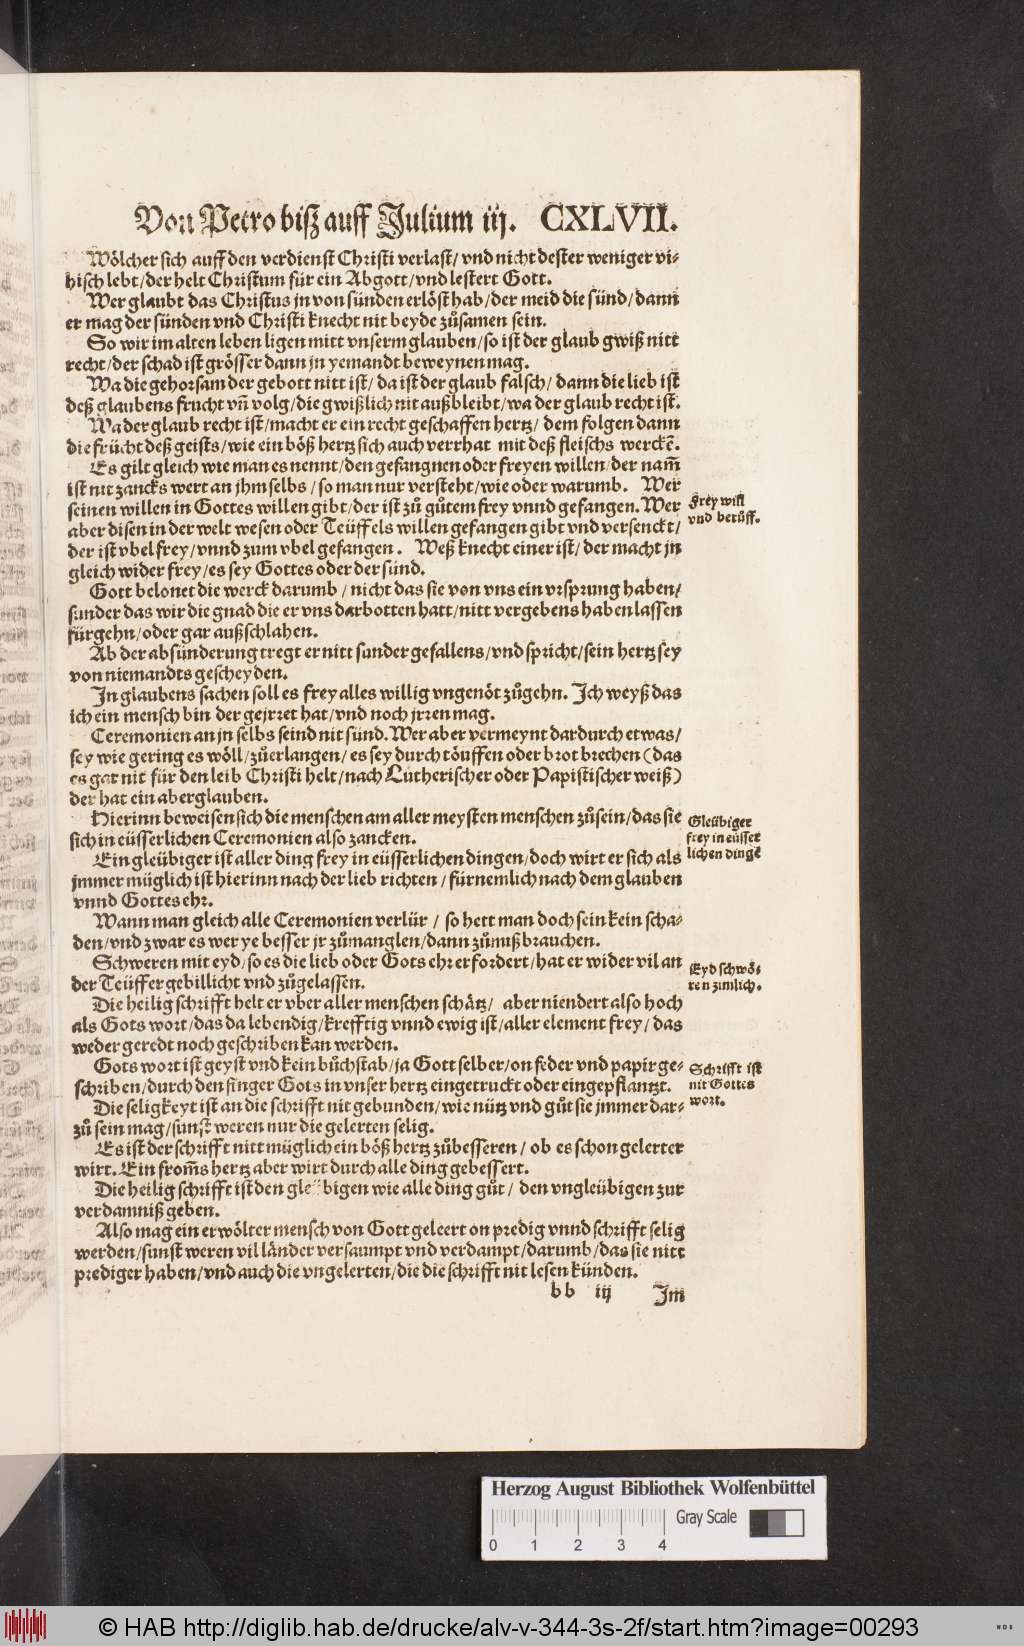 Von Petro biß auff Julium iij. CXLVII.
Wölcher sich auff den verdienst Christi verlast/ vnd nicht dester weniger vi-
hisch lebt/der helt Christum für ein Abgott/vnd lestert Gott.
Wer glaubt das Christus jn von sünden erlöst hab/der meid die sünd/dann
er mag der sünden vnd Christi knecht nit beyde zůsamen sein.
So wir im alten leben ligen mitt vnserm glauben/so ist der glaub gwiß nitt
recht/der schad ist grösser dann jn yemandt beweynen mag.
Wa die gehorsam der gebott nitt ist/ da ist der glaub falsch/ dann die lieb ist
deß glaubens frucht vñ volg/die gwißlich nit außbleibt/wa der glaub recht ist.
Wa der glaub recht ist/macht er ein recht geschaffen hertz/ dem folgen dann
die frücht deß geists/wie ein böß hertz sich auch verrhat mit deß fleischs werckē.
Es gilt gleich wie man es nennt/den gefangnen oder freyen willen/der nam̄
ist nit zancks wert an jhm selbs/so man nur versteht/wie oder warumb. Wer
seinen willen in Gottes willen gibt/der ist zů gůtem frey vnnd gefangen. Wer
aber disen in der welt wesen oder Teüffels willen gefangen gibt vnd versenckt/
der ist vbel frey/vnnd zum vbel gefangen. Weß knecht einer ist/der macht jn
gleich wider frey/es sey Gottes oder der sünd.
Frey will
vnd berüff.
Gott belonet die werck darumb/ nicht das sie von vns ein vrsprung haben/
sunder das wir die gnad die er vns darbotten hatt/nitt vergebens haben lassen
fürgehn/oder gar außschlahen.
Ab der absünderung tregt er nitt sunder gefallens/vnd spricht/sein hertz sey
von niemandts gescheyden.
In glaubens sachen soll es frey alles willig vngenöt zůgehn. Ich weyß das
ich ein mensch bin der gejrret hat/vnd noch jrren mag.
Ceremonien an jn selbs seind nit sünd. Wer aber vermeynt dardurch etwas/
sey wie gering es wöll/zůerlangen/es sey durch töuffen oder brot brechen (das
es gar nit für den leib Christi helt/nach Lutherischer oder Papistischer weiß)
der hat ein aberglauben.
Hierinn beweisen sich die menschen am aller meysten menschen zůsein/das sie
sich in eüsserlichen Ceremonien also zancken.
Ein gleübiger ist aller ding frey in eüsserlichen dingen/doch wirt er sich als
jmmer müglich ist hierinn nach der lieb richten/fürnemlich nach dem glauben
vnnd Gottes ehr.
Gleübiger
frey in eüsser
lichen dingē
Wann man gleich alle Ceremonien verlür/ so hett man doch sein kein scha-
den/vnd zwar es wer ye besser jr zůmanglen/dann zůmißbrauchen.
Schweren mit eyd/so es die lieb oder Gots ehr erfordert/hat er wider vil an
der Teüffer gebillicht vnd zůgelassen.
Eyd schwö-
ren zimlich.
Die heilig schrifft helt er vber aller menschen schätz/ aber niendert also hoch
als Gots wort/das da lebendig/krefftig vnnd ewig ist/aller element frey/das
weder geredt noch geschriben kan werden.
Gots wort ist geyst vnd kein bůchstab/ja Gott selber/on feder vnd papir ge-
schriben/durch den finger Gots in vnser hertz eingetruckt oder eingepflantzt.
Schrifft ist
nit Gottes
wort.
Die seligkeyt ist an die schrifft nit gebunden/wie nütz vnd gůt sie jmmer dar-
zů sein mag/sunst weren nur die gelerten selig.
Es ist der schrifft nitt müglich ein böß hertz zůbesseren/ ob es schon gelerter
wirt. Ein from̄s hertz aber wirt durch alle ding gebessert.
Die heilig schrifft ist den gleübigen wie alle ding gůt/ den vngleübigen zur
verdamniß geben.
Also mag ein erwölter mensch von Gott geleert on predig vnnd schrifft selig
werden/sunst weren vil länder versaumpt vnd verdampt/darumb/das sie nitt
prediger haben/vnd auch die vngelerten/die die schrifft nit lesen künden.
bb iij Im
Herzog August Bibliothek Wolfenbüttel
Gray Scale
0 1 2 3 4
© HAB http://diglib.hab.de/drucke/alv-v-344-3s-2f/start.htm?image=00293